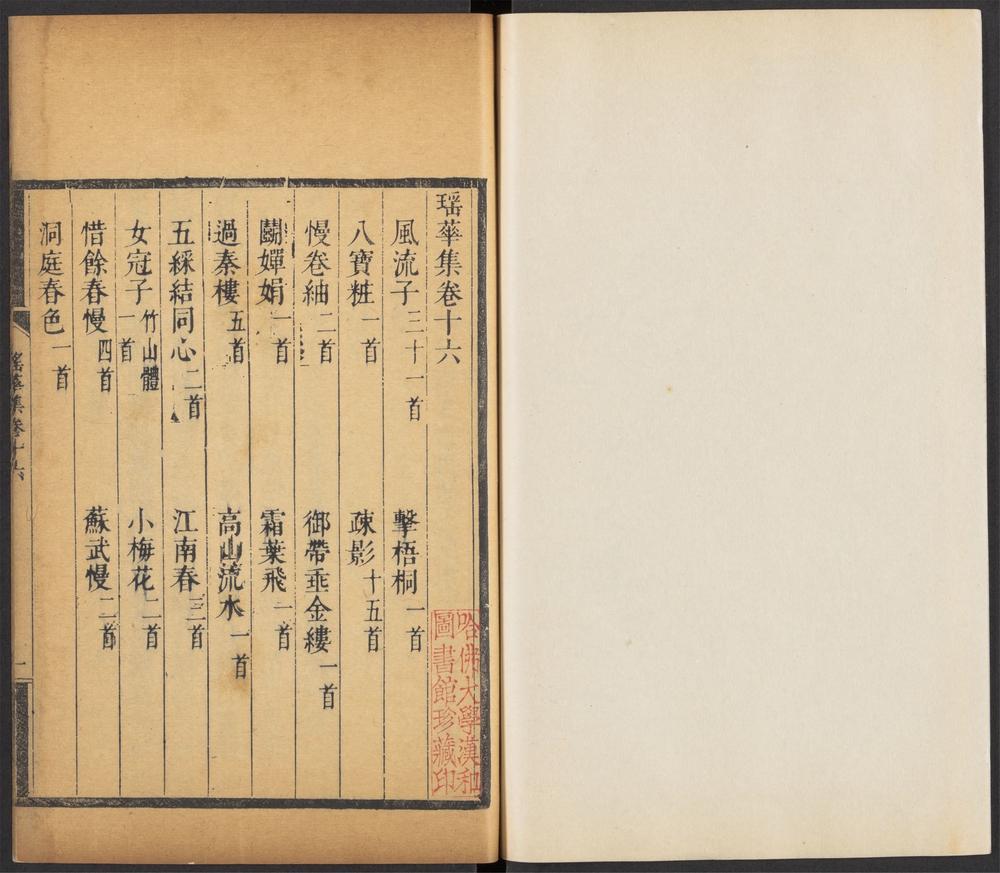 瑶華集卷十六
風流子三十一首　擊梧桐一首
八寶粧一首　疎影十五首
慢卷紬二首　御帶垂金縷一首
鬭嬋娟一首　霜葉飛一首
過秦樓五首　高山流水一首
五綵結同心二首　江南春三首
女冠子竹山體一首　小梅花二首
惜餘春慢四首　蘇武慢二首
洞庭春色一首
瑤華集卷十六
一
哈佛大學漢和
圖書館珍藏印